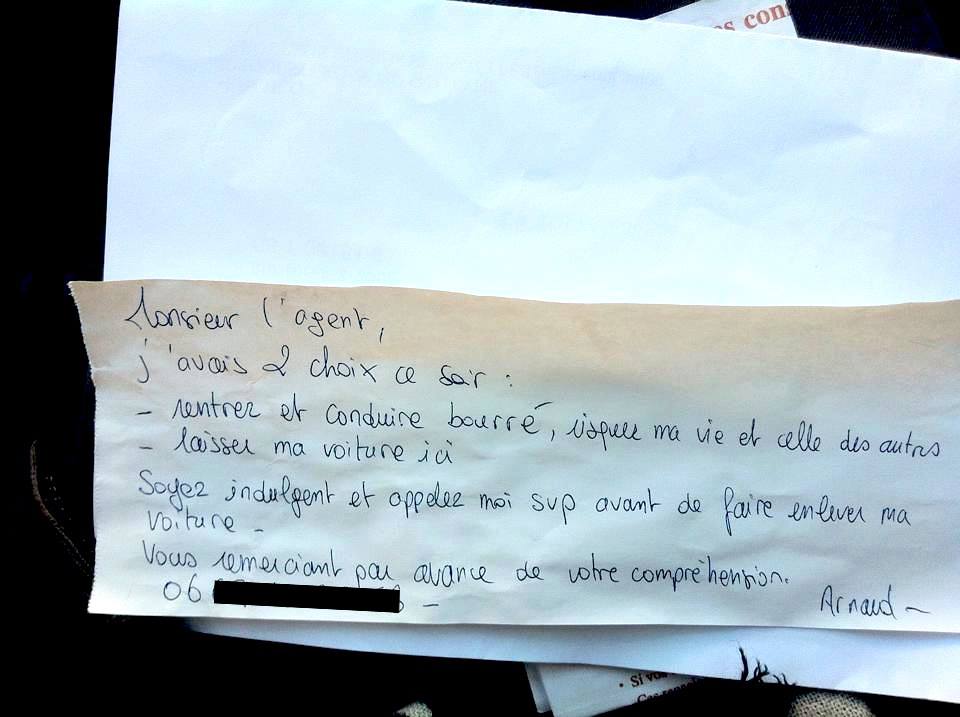 es con
Monsieur l'agent,
j'avais 2 choix ce soir :
- rentrez et conduire bourré, risquer ma vie et celle des autres
- laisser ma voiture ici
Soyez indulgent et appelez moi svp avant de faire enlever ma
voiture -
Vous remerciant par avance de votre compréhension.
06 -
Arnaud -
• Si vo